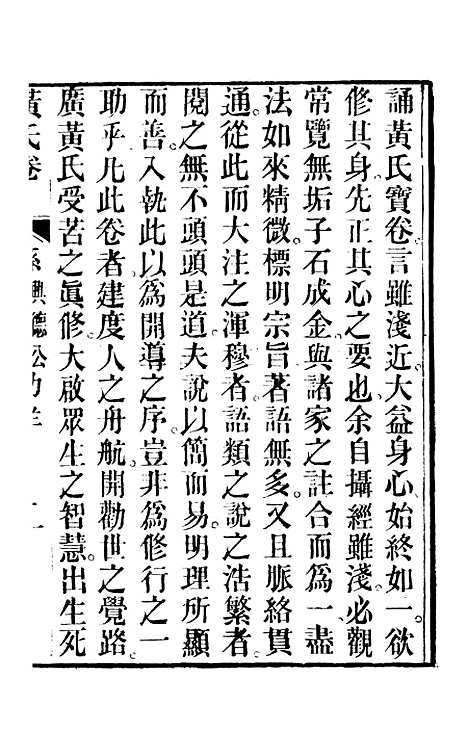 誦黃氏寶卷。言雖淺近。大益身心。始終如一。欲
修其身。先正其心之要也。余自攝經雖淺。必觀
常覽無垢子石成金。與諸家之註合而爲一。盡
法如來精微。標明宗旨。著語無多。又且脈絡貫
通。從此而大注之渾穆者。語類之說之浩繁者。
閱之無不頭頭是道。夫說以簡而易。明理所顯
而善入。執此以爲開導之序。豈非爲修行之一
助乎。凡此卷者。建度人之舟航。開勸世之覺路。
廣黃氏受苦之眞修。大啟眾生之智慧。出生死
黃氏卷